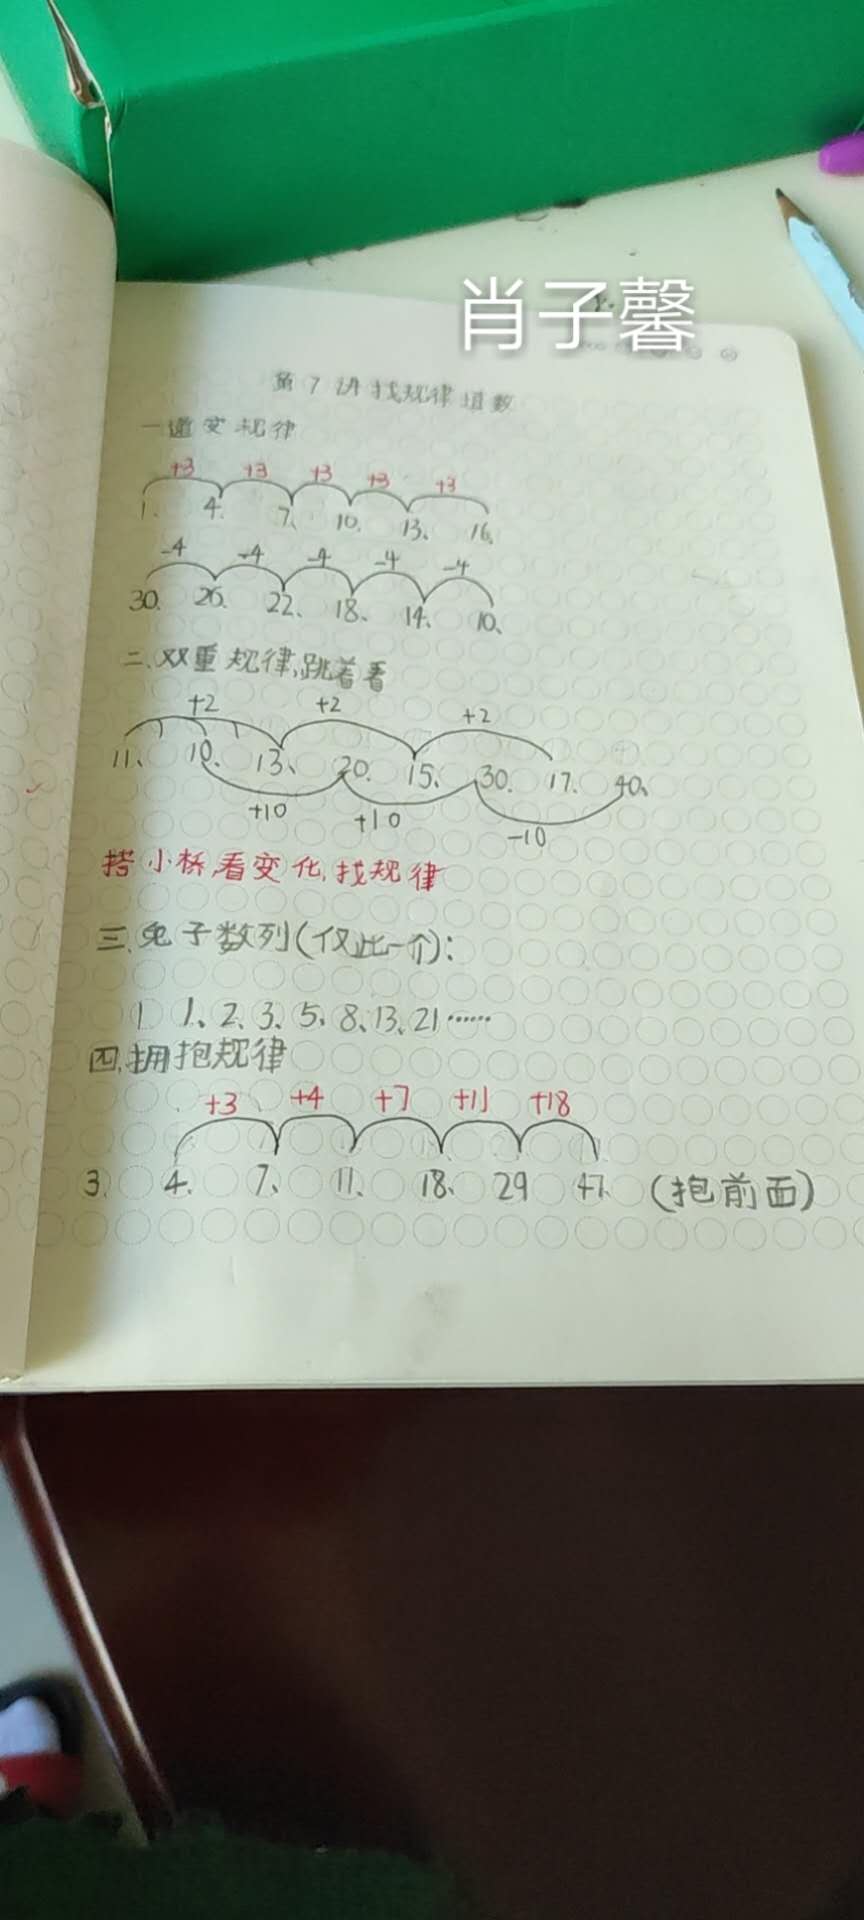 肖子馨
第7讲找规律填数
一递变规律
+3 +3 +3 +3 +3
1、 4、 7、 10、 13、 16、
-4 -4 -4 -4 -4
30、 26、 22、 18、 14、 10、
二、双重规律,跳着看
+2 +2 +2
11、 10、 13、 20、 15、 30、 17、 40、
+10 +10 -10
搭小桥,看变化,找规律
三、兔子数列(仅此一个):
1 1、2、3、5、8、13、21……
四、拥抱规律
+3 +4 +7 +11 +18
3、 4、 7、 11、 18、 29 47、 (抱前面)